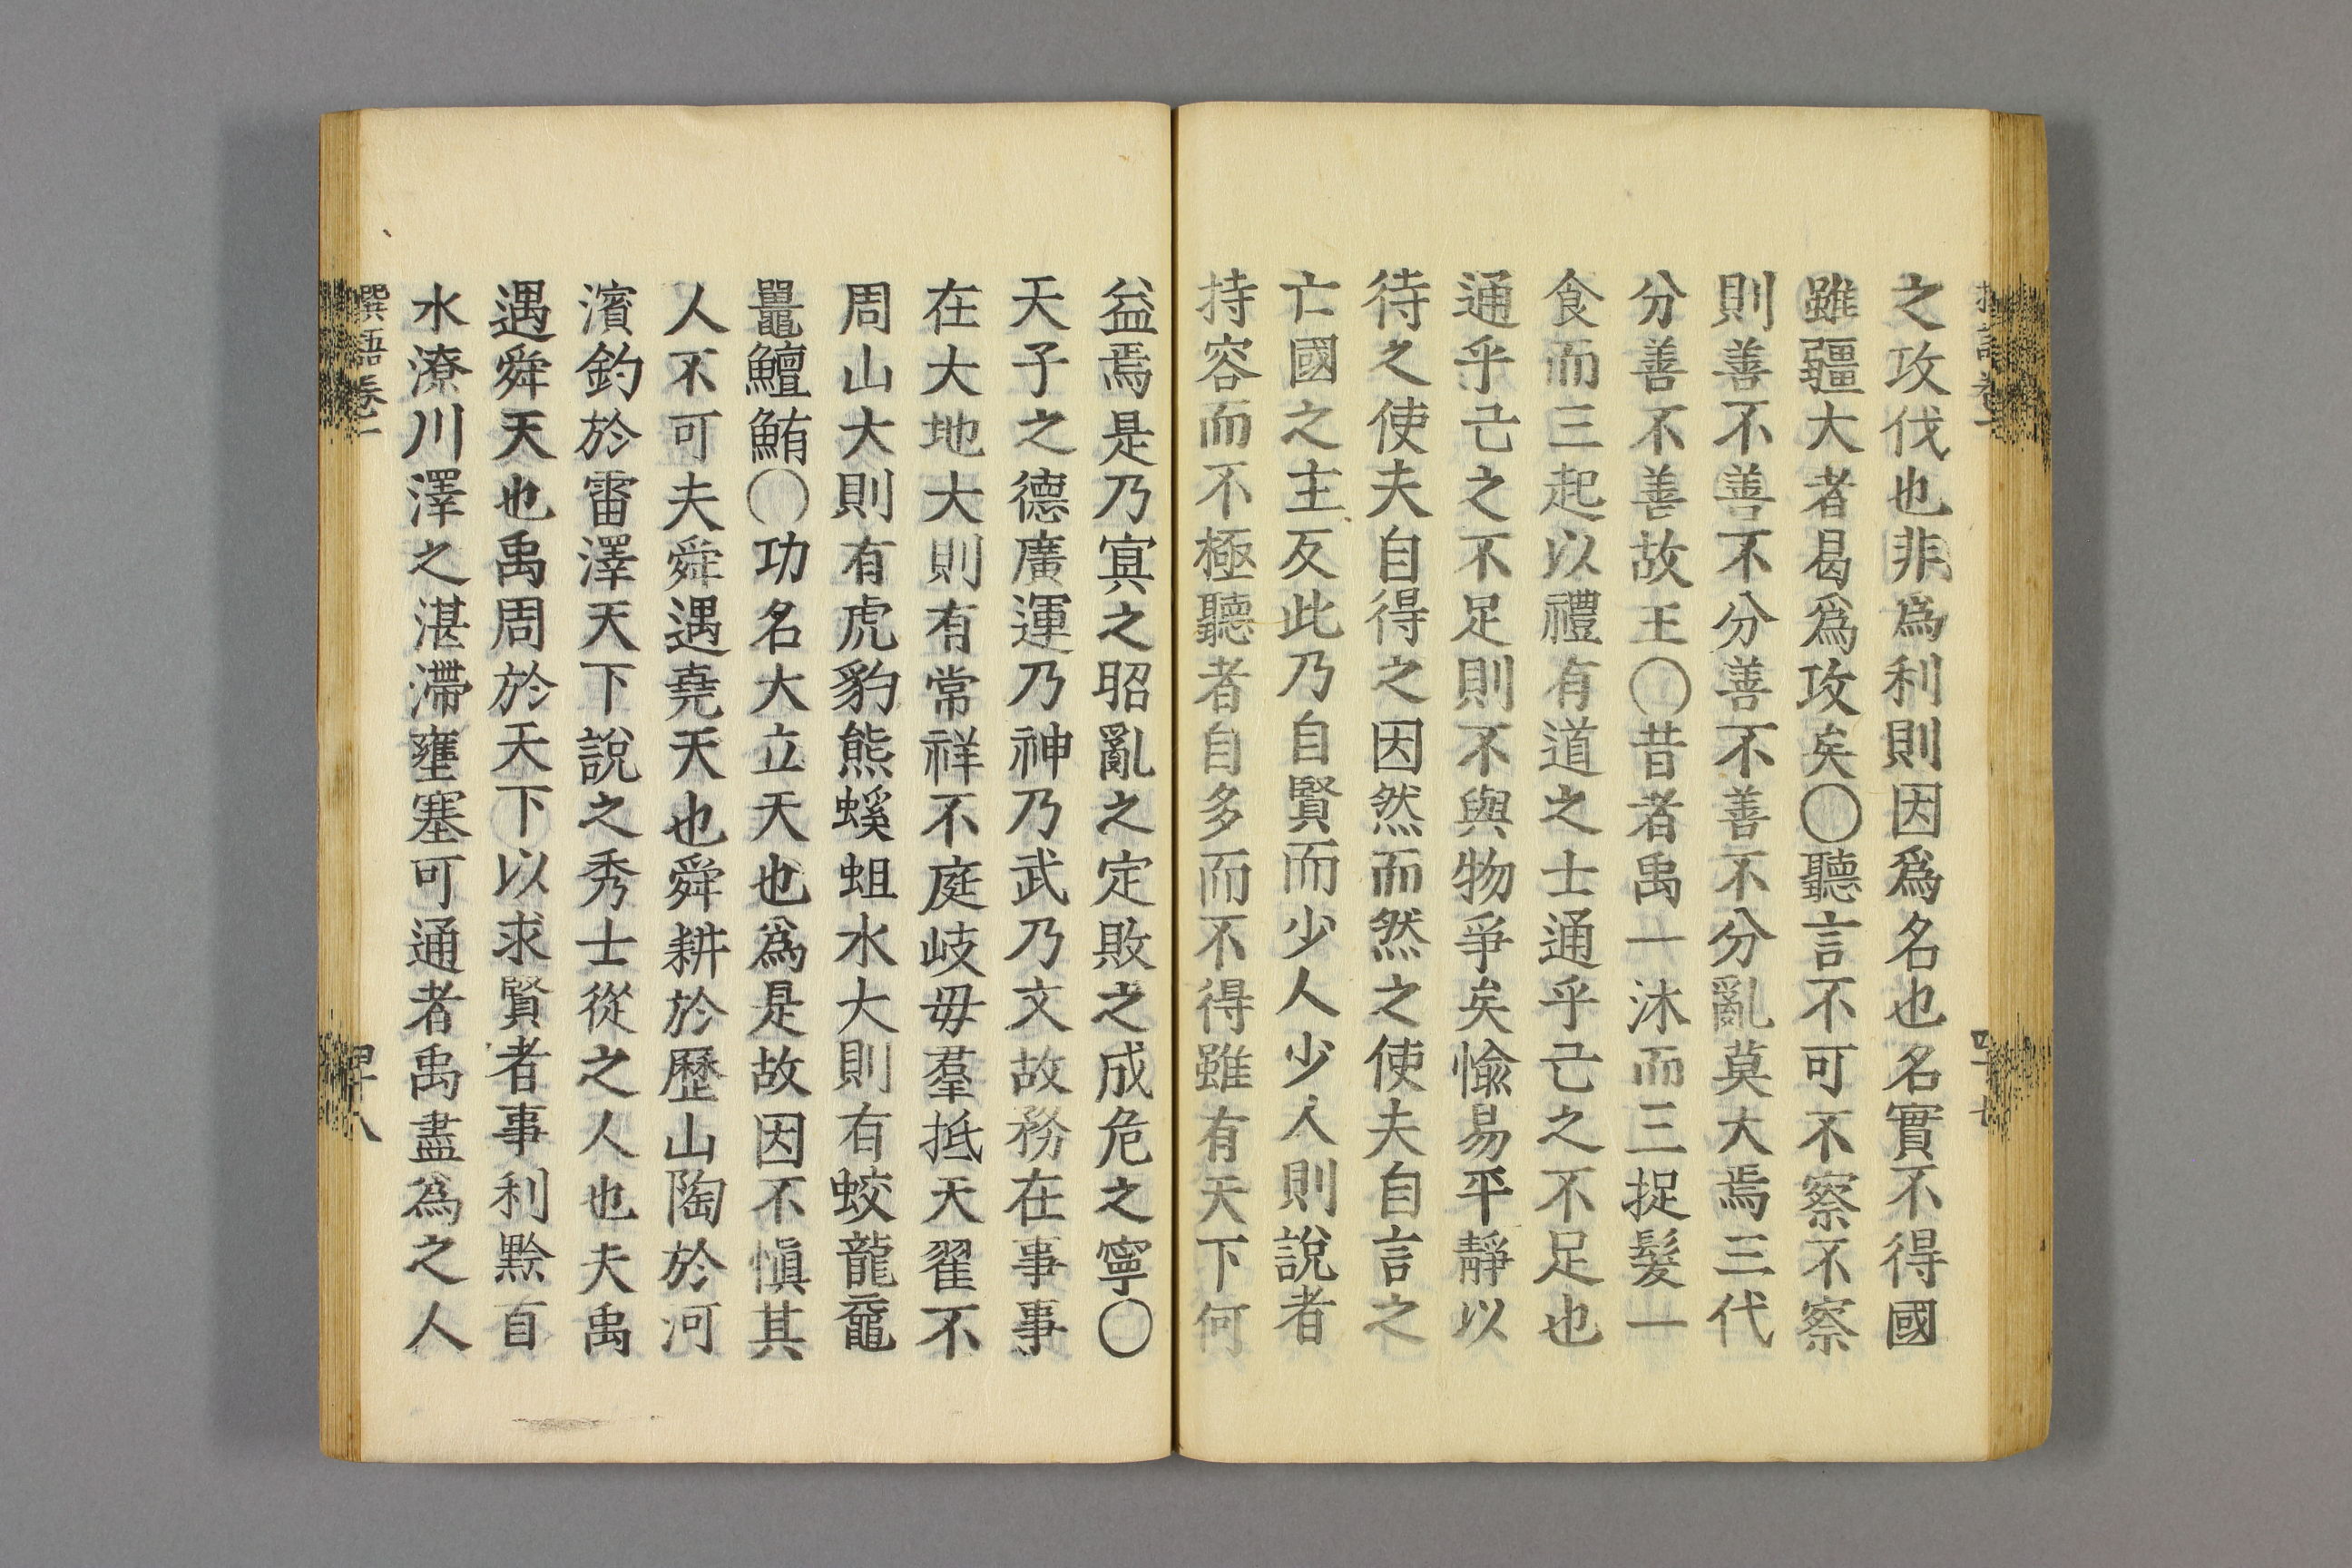 之攻伐也非爲利則因爲名也名實不得國
雖彊大者曷爲攻矣○聽言不可不察不察
則善不善不分善不善不分亂莫大焉三代
分善不善故王○昔者禹一沐而三捉髮一
食而三起以禮有道之士通乎己之不足也
通乎己之不足則不與物爭矣愉易平靜以
待之使夫自得之因然而然之使夫自言之
亡國之主反此乃自賢而少人少人則說者
持容而不極聽者自多而不得雖有天下何
益焉是乃冥之昭亂之定敗之成危之寧○
天子之德廣運乃神乃武乃文故務在事事
在大地大則有常祥不庭歧毋羣抵天翟不
周山大則有虎豹熊螇蛆水大則有蛟龍黿
鼉鱣鮪○功名大立天也爲是故因不愼其
人不可夫舜遇堯天也舜耕於歷山陶於河
濱釣於雷澤天下說之秀士從之人也夫禹
遇舜天也禹周於天下以求賢者事利黔首
水潦川澤之湛滯壅塞可通者禹盡爲之人
撰語卷一
四十八